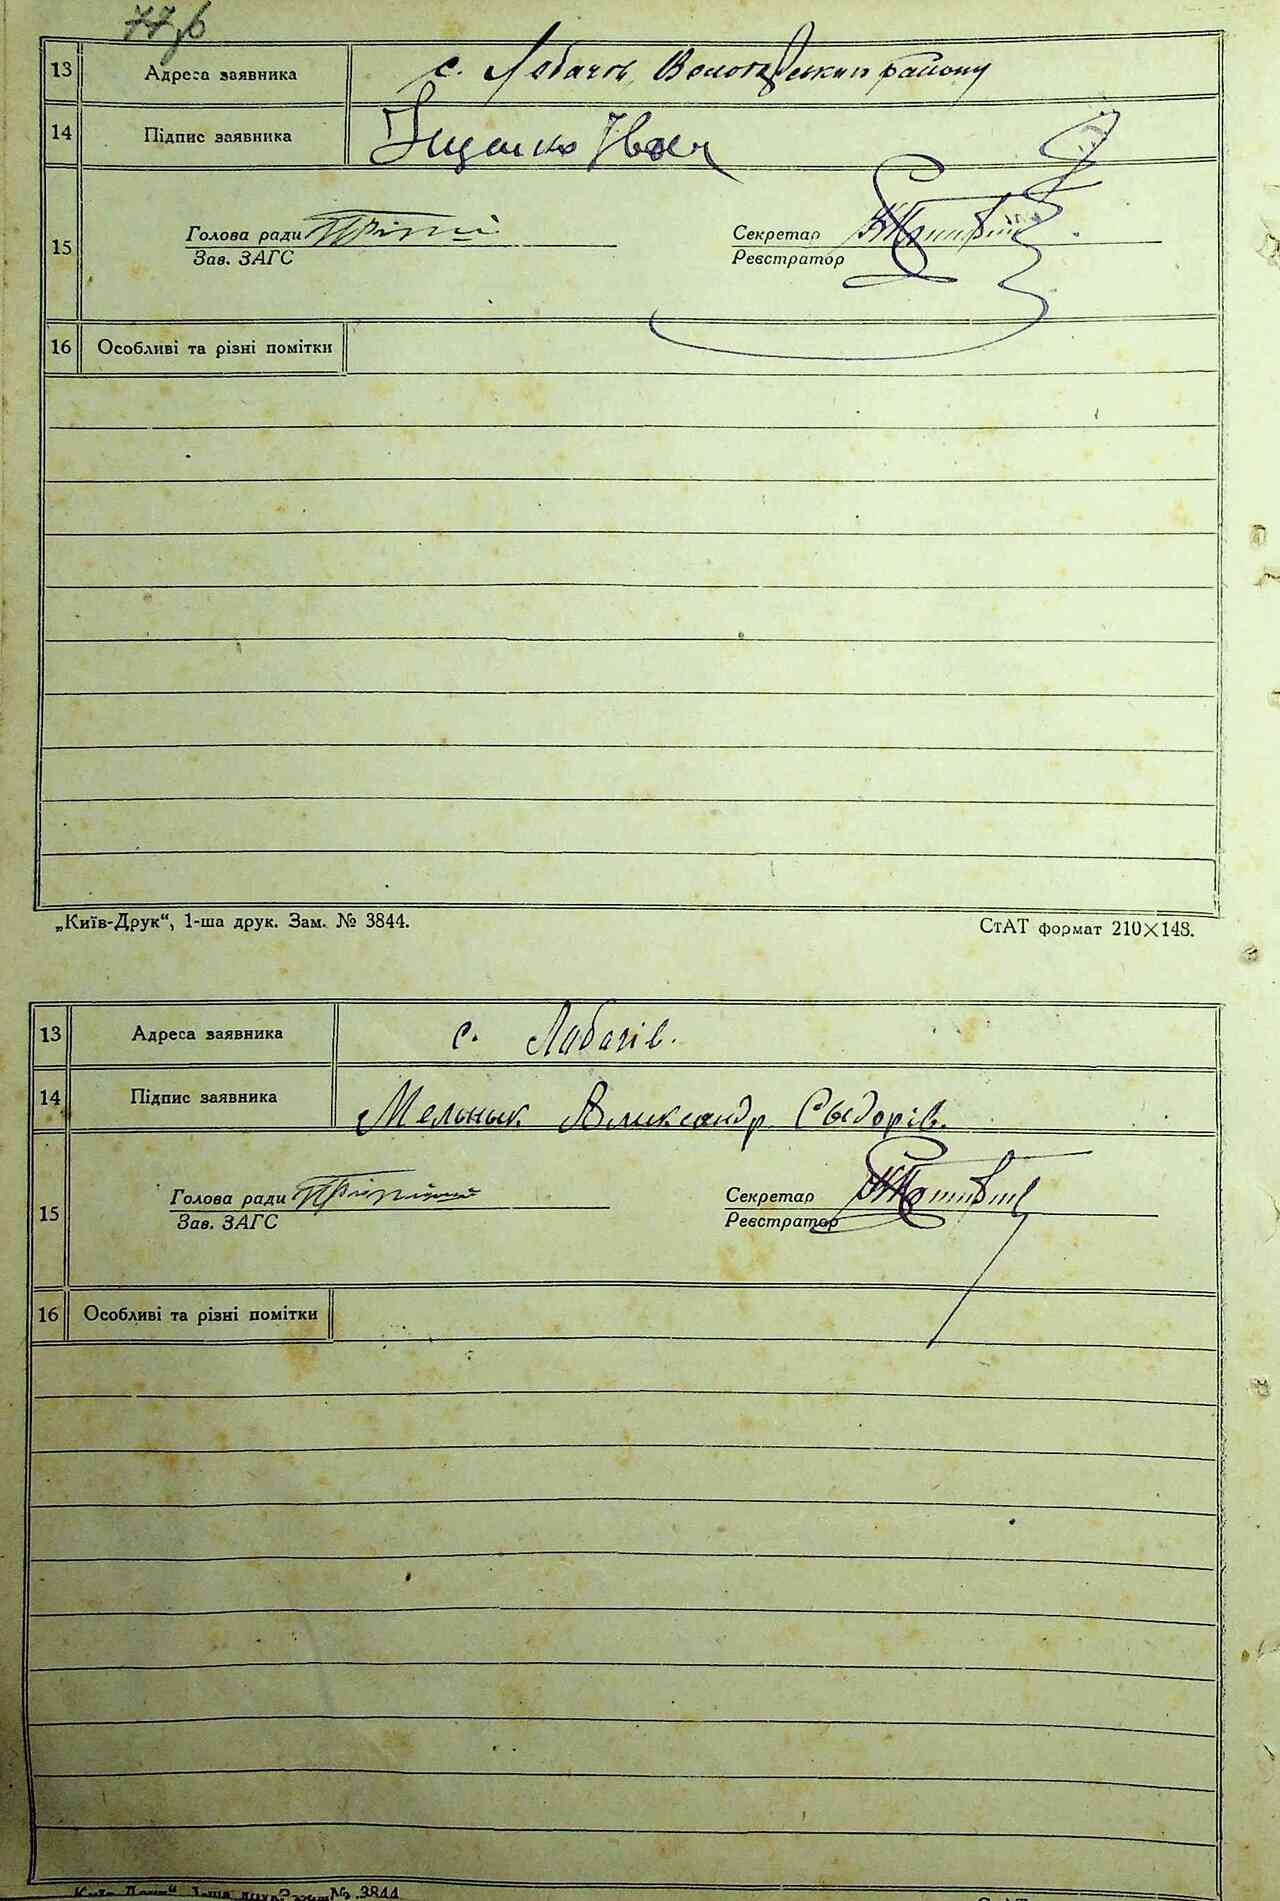 13 Адреса заявника с. Лобачів Володарського району
14 Підпис заявника Іван
15 Голова ради Секретар
Зав. ЗАГС Реєстратор
16 Особливі та різні помітки
„Київ-Друк“, 1-ша друк. Зам. № 3844. СтАТ формат 210×148.
13 Адреса заявника с. Лабачів.
14 Підпис заявника Мельнык Александр Сыдорів.
15 Голова ради Секретар
Зав. ЗАГС Реєстратор
16 Особливі та різні помітки
№ 3844